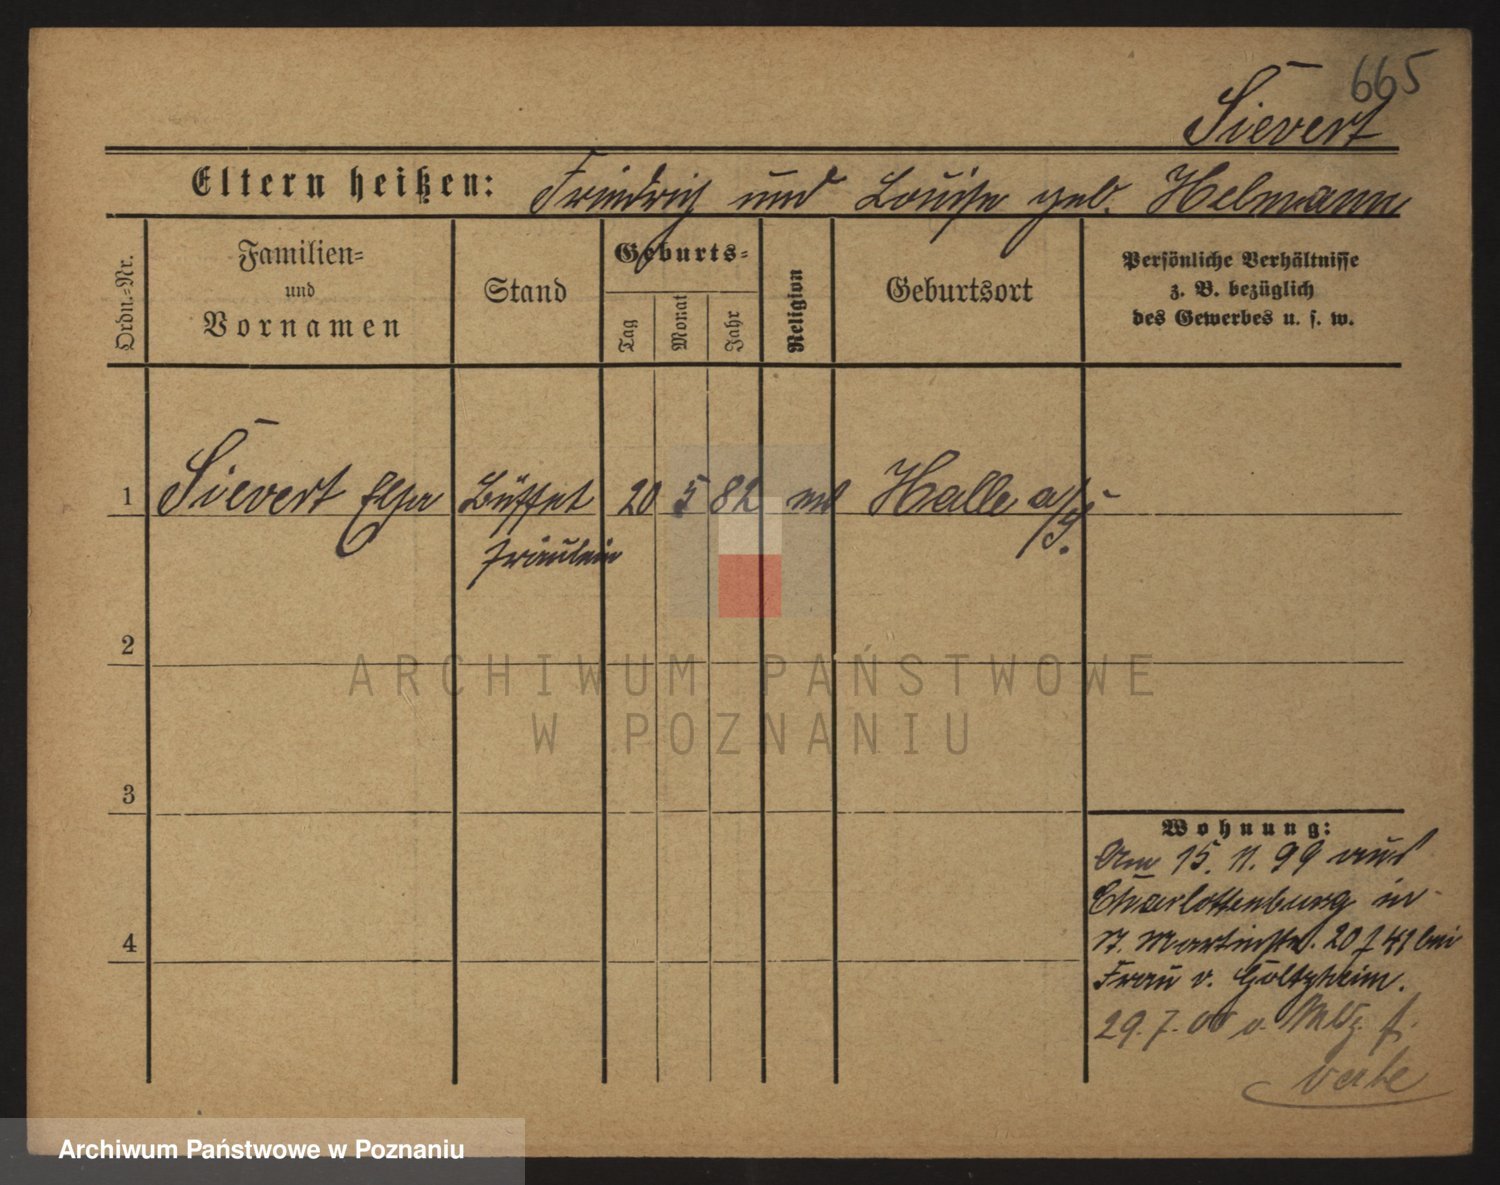 665
Sievert
Eltern heißen: Friedrich und Louise geb. Helmann
Ordn.-Nr.
Familien-
und
Vornamen
Stand
Geburts-
Tag
Monat
Jahr
Religion
Geburtsort
Persönliche Verhältnisse
z. B. bezüglich
des Gewerbes u. s. w.
1 Sievert Elsa Büffet 20 5 82 Halle a/S.
fräulein
2
ARCHIWUM PAŃSTWOWE
W POZNANIU
3
Wohnung:
Am 15. 11. 99 aus
Charlottenburg in
St. Martinstr. 20 bei
4
Frau v. Goltzheim.
29. 7. 00 v.
Archiwum Państwowe w Poznaniu